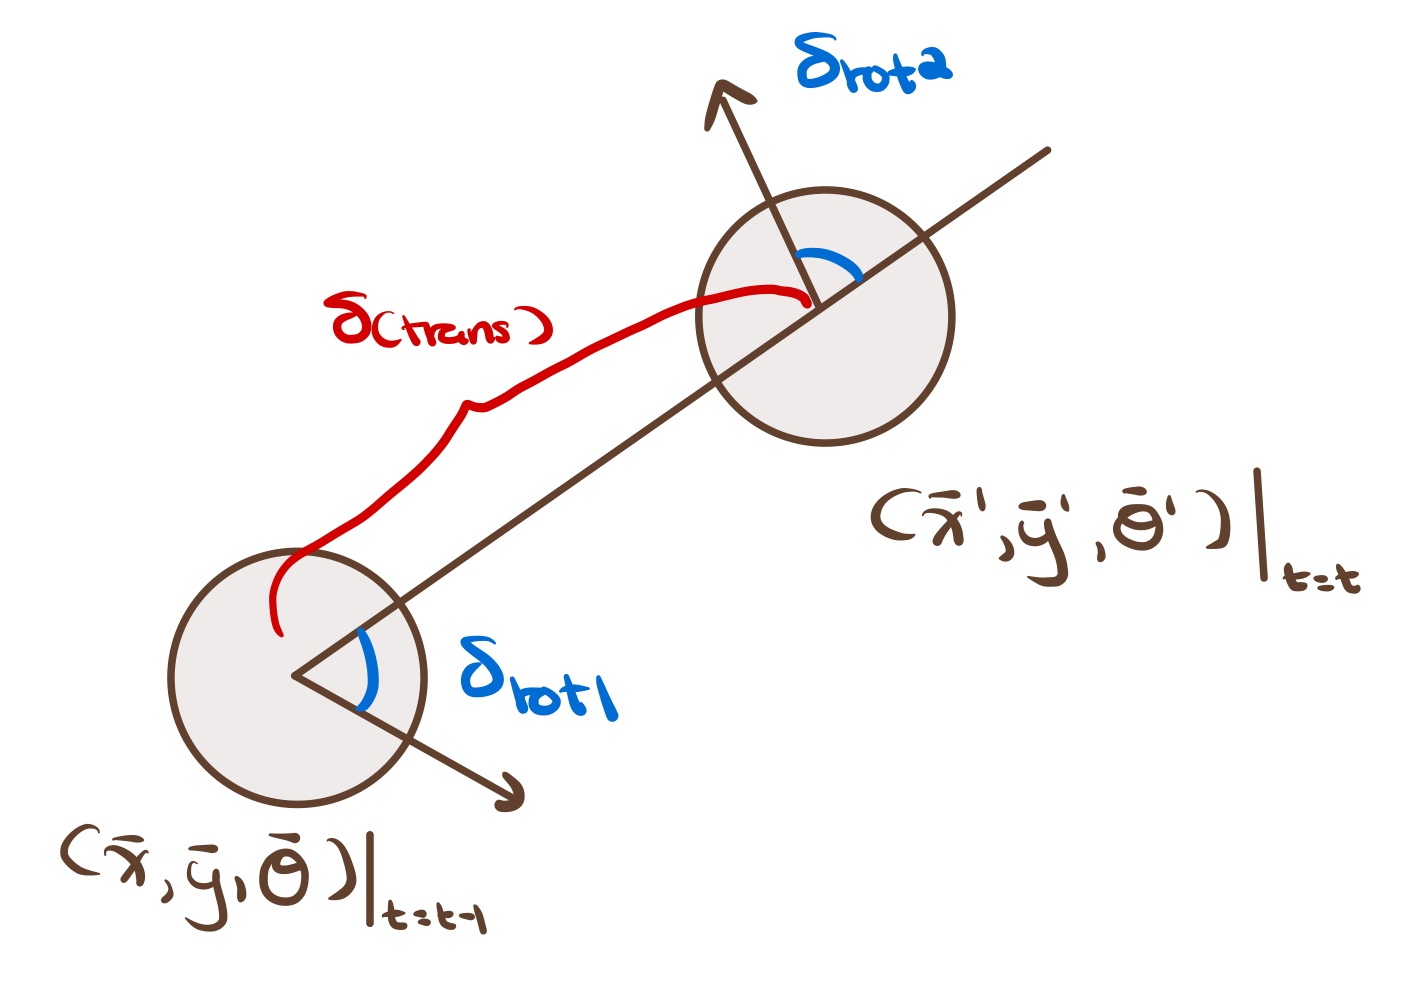 δrot2
δ(trans)
(x̄', ȳ', θ̄')|t=t
δrot1
(x̄, ȳ, θ̄)|t=t-1